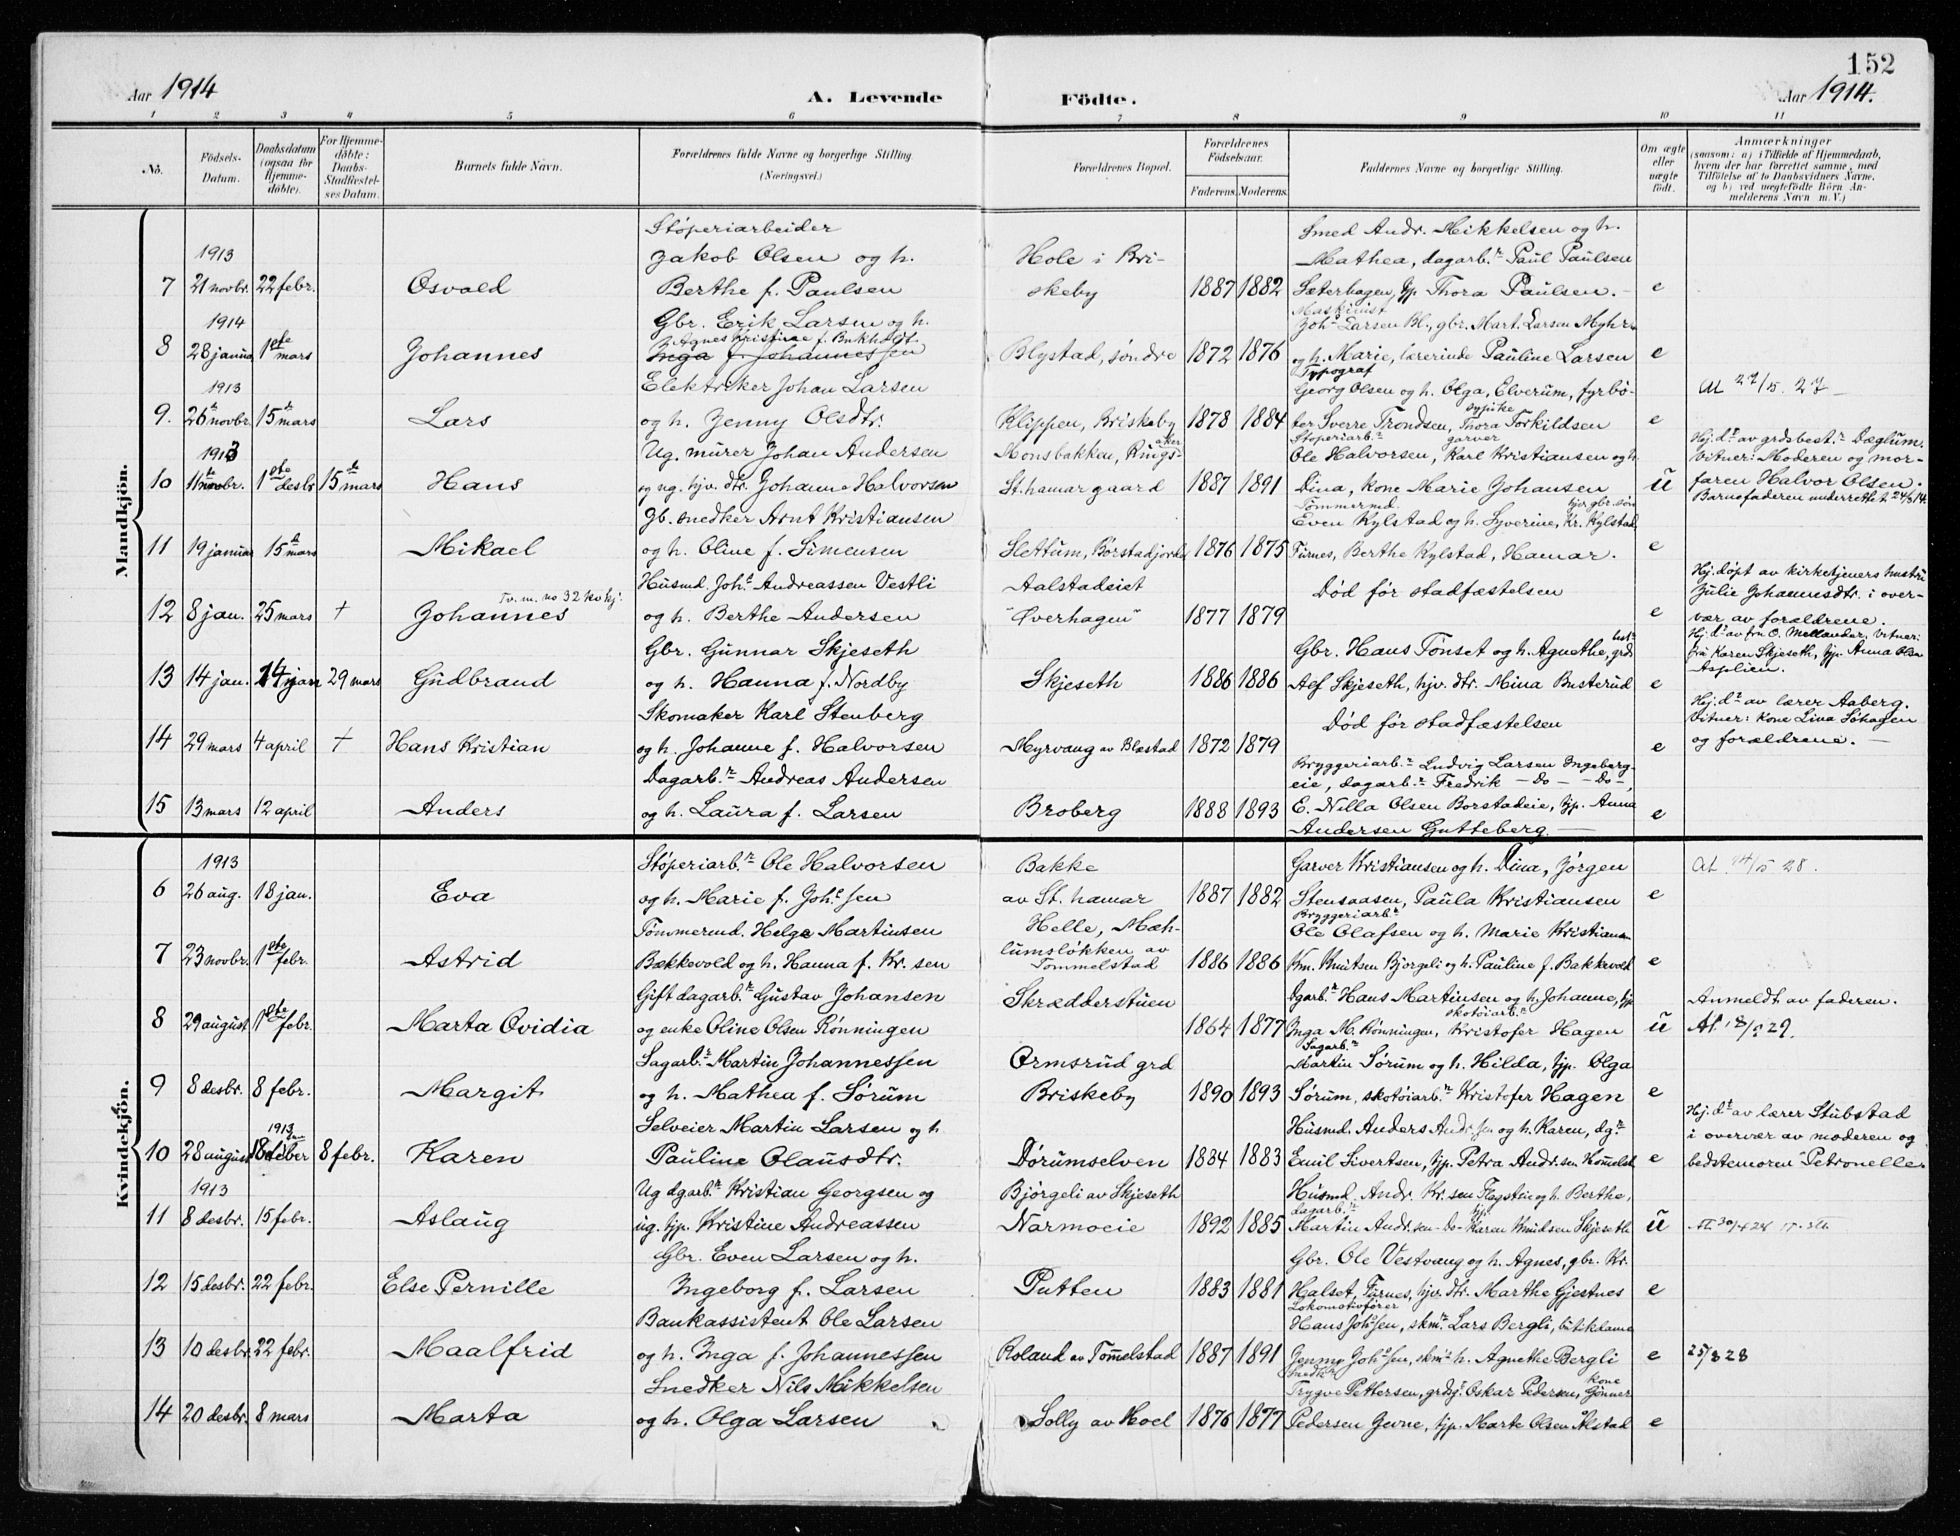 152
Aar 1914 A. Levende Födte. Aar 1914.
1 2 3 4 5 6 7 8 9 10 11
No.
Födsels-Datum.
Daabsdatum (ogsaa for Hjemmedöbte).
For Hjemmedöbte: Daabs-Stadfæstelses Datum.
Barnets fulde Navn.
Forældrenes fulde Navne og borgerlige Stilling. (Næringsvei.)
Forældrenes Bopæl.
Forældrenes Födselsaar.
Faderens. Moderens.
Faddernes Navne og borgerlige Stilling.
Om ægte eller uægte födt.
Anmærkninger
(saasom: a) i Tilfælde af Hjemmedaab,
hvem der har forrettet samme, med
Tilföielse af to Daabsvidners Navne,
og b) ved uægtefödte Börn An-
melderens Navn m. V.)
Mandkjön.
1913
7 21 novbr. 22 febr. Osvald
Støperiarbeider
Jakob Olsen og h.
Berthe f. Paulsen
Hole i Bri-
skeby 1887 1882
Smed Andr. Mikkelsen og h.
Mathea, dagarb.r Paul Paulsen
Sæterhagen, tjp. Thora Paulsen. e
1914
8 28 januar 1ste mars Johannes
Gbr. Erik Larsen og h.
Agnes Kristine f. Bukholdt
Inga f. Johannessen
Blystad, søndre 1872 1876
Maskinist
Joh. Larsen Bl., gbr. Mart. Larsen Myhr
og h. Marie, lærerinde Pauline Larsen e
1913
9. 26 novbr. 15 mars Lars
Elektriker Johan Larsen
og h. Jenny Olsdtr.
Klippen, Briskeby 1878 1884
Typograf
Georg Olsen og h. Olga, Elverum, fyrbø-
sypike
ter Sverre Trondsen, Thora Torkildsen e
At 27/5. 27
1913
10 11 novbr. 1ste desbr 15 mars Hans
Ug. murer Johan Andersen
og ug. hjv. dtr. Johanne Halvorsen
Monsbakken, Rings-
aker
St. hamar gaard 1887 1891
Støperiarb.r garver
Ole Halvorsen, Karl Kristiansen og h
Dina, kone Marie Johansen u
Hj. dt av grdsbest.r Dæglum.
Vitner: Moderen og mor-
faren Halvor Olsen.
Barnefaderen underrettet 24/3 14.
11 19 januar 15 mars Mikael
Gb. snedker Arnt Kristiansen
og h. Oline f. Simensen
Slettum, Børstadjordet 1876 1875
Tømmermd. hjv. gbr. søn
Even Kylstad og h. Syverine, Kr. Kylstad
Furnes, Berthe Kylstad, Hamar. e
12 8 jan. 25 mars + Johannes
Tv. m. no 32 kvkj.
Husmd. Joh. Andreassen Vestli
og h. Berthe Andersen
Aalstadeiet
"Øverhagen" 1877 1879
Død før stadfæstelsen e
Hj. døpt av kirketjeners hustru
Julie Johannesdtr. i over-
vær av forældrene.
13 14 jan. 24 jan 29 mars Gudbrand
Gbr. Gunnar Skjeseth
og h. Hanna f. Nordby
Skjeseth 1886 1886
Gbr. Hans Tønset og h. Agnethe, grd
Alf Skjeseth, hjv. dtr. Mina Busterud e
Hj. dt av fru O. Mellander, Vitner:
fru Karen Skjeseth, tjp. Anna Olsen
Asplien.
14 29 mars 4 april + Hans Kristian
Skomaker Karl Stenberg
og h. Johanne f. Halvorsen
Myrvang av Blæstad 1872 1879
Død før stadfæstelsen e
Hj. dt av lærer Aaberg.
Vitner: Kone Lina Søhagen
og forældrene.
15 13 mars 12 april Anders
Dagarb.r Andreas Andersen
og h. Laura f. Larsen
Broberg 1888 1893
Bryggeriarb.r Ludvig Larsen Ingeberg-
eie, dagarb.r Fredrik — Do — — Do —,
E. Nilla Olsen Borstadeie, tjp. Anna
Andersen Gutteberg. e
Kvindekjön.
1913
6 26 aug. 18 jan. Eva
Støperiarb.r Ole Halvorsen
og h. Marie f. Joh.ssen
Bakke
av St. hamar 1887 1882
Garver Kristiansen og h. Dina, Jørgen
Stensaasen, Paula Kristiansen e
At 14/5 28.
7 23 novbr. 1ste febr. Astrid
Tømmermd. Helge Martinsen
Bækkevold og h. Hanna f. Kr. sen
Helle, Mæh-
lumsløkken av
Tommelstad 1886 1886
Bryggeriarb.r
Ole Olafsen og h. Marie Kristians
Km. Knutsen Bjørgeli og h. Pauline f. Bakkevold e
8 29 august 1ste febr. Marta Ovidia
Gift dagarb.r Gustav Johansen
og enke Oline Olsen Rønningen
Skrædderstuen 1864 1877
Dgarb.r Hans Martinsen og h. Johanne, tjp
skotøiarb.r
Inga M. Rønningen, Kristofer Hagen u
Anmeldt av faderen.
9 8 desbr. 8 febr. Margit
Sagarb.r Martin Johannessen
og h. Mathea f. Sørum
Ormsrud grd
Briskeby 1890 1893
Sagarb.r
Martin Sørum og h. Hilda, tjp. Olga
Sørum, skotøiarb.r Kristofer Hagen e
1913
10 28 august 18 8 febr. Karen
Selveier Martin Larsen og h
Pauline Olausdtr.
Dørumselven 1884 1883
Husmd. Anders Andr.sen og h. Karen, dg.r
Emil Sivertsen, tjp. Petra Andr.sen e
Hj. dt av lærer Stubstad
i overvær av moderen og
bedstemoren Petronelle.
1913
11 8 desbr. 15 febr. Aslaug
Ug dgarb.r Kristian Georgsen og
ug. tjp. Kristine Andreassen
Bjørgeli av Skjeseth
Narmoeie 1892 1885
Husmd. Andr. Kr.sen Flagsteie og h. Berthe,
dagarb.r tjp.
Martin Andr.sen - Do - Karen Knudsen Skjeseth u
12 15 desbr. 22 febr. Else Pernille
Gbr. Even Larsen og h.
Ingeborg f. Larsen
Putten 1883 1881
Gbr. Ole Vestvang og h. Agnes, gbr. Kr.
Hjalset, Furnes, hjv. dtr. Marthe Gjestnes e
13 10 desbr. 22 febr. Maalfrid
Bankassistent Ole Larsen
og h. Inga f. Johannessen
Roland av Tommelstad 1887 1891
Lokomotivfører
Hans Joh.ssen, skm.r Lars Bergli, butikdame
Jenny Joh.ssen, skm.r h. Agnethe Bergli e
25/3 28
14 20 desbr. 8 mars Marta
Snedker Nils Mikkelsen
og h. Olga Larsen
Solly av Hoel 1876 1877
Snedk.r kone
Trygve Pettersen, grdsj. Oskar Pedersen, Gunner
Pedersen Jevne, tjp. Marte Olsen Alstad e